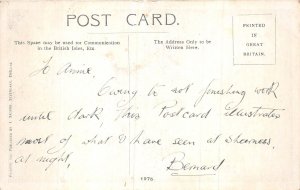 POST CARD.
This Space may be used for Communication
in the British Isles, Etc.
The Address Only to be
Written Here.
PRINTED
IN
GREAT
BRITAIN.
To Annie
Owing to not finishing work
until dark this Postcard illustrates
most of what I have seen at Sheerness
at night.
Bernard
1076